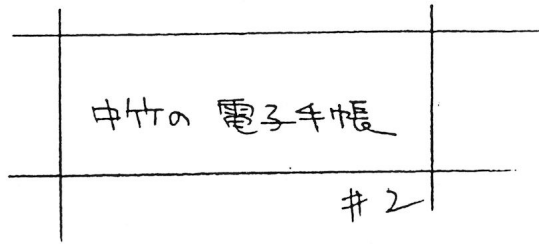 中竹の電子手帳
#2